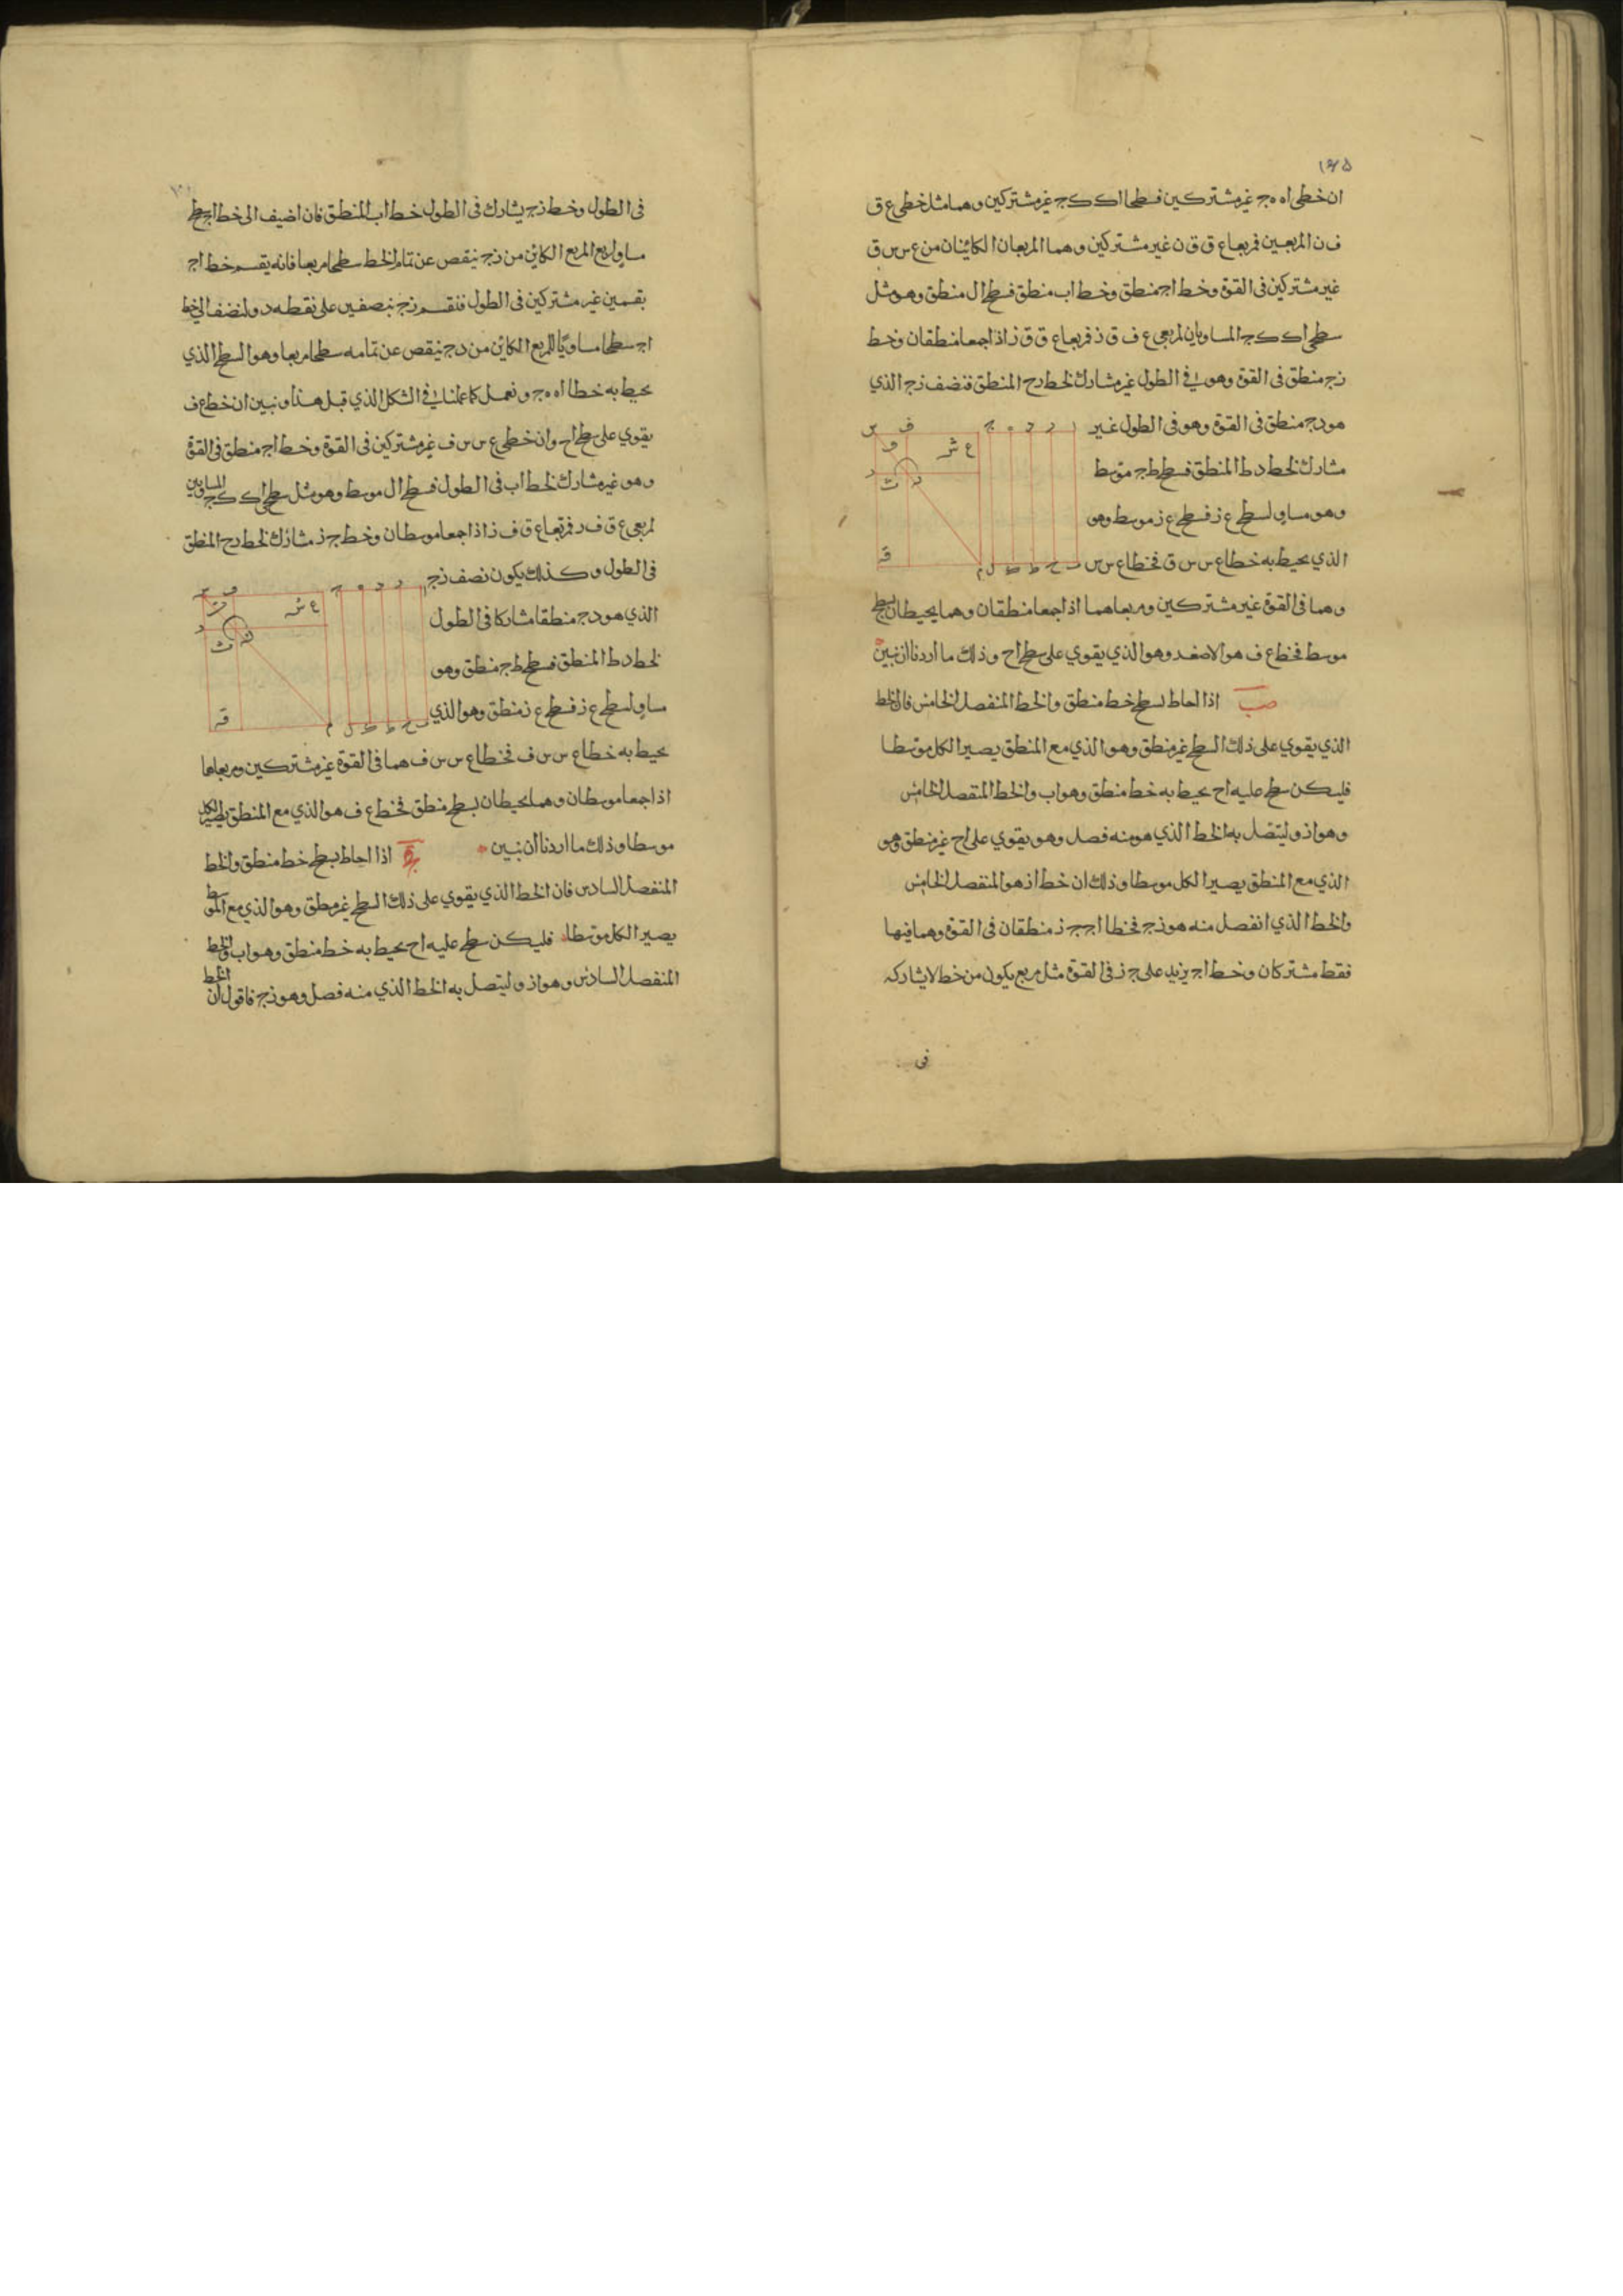 ١٦٥
ان خطى اه ه ج غير مشتركين فسطحا اك ك ج غير مشتركين وهما مثل خطى ع ق
ف ن المربعين فمربعا ع ق ق ن غير مشتركين وهما المربعان الكائنان من ع س س ق
غير مشتركين فى القوة وخط اج منطق وخط اب منطق فسطح ال منطق وهو مثل
سطحى اك ك ج المساويان لمربعى ع ف ق ز فمربعا ع ق ق ز اذا جمعا منطقان وخط
ز ج منطق فى القوة وهو فى الطول غير مشارك لخط رح المنطق فنصف ز ج الذي
هو د ج منطق فى القوة وهو فى الطول غير
مشارك لخط د ط المنطق فسطح ط ج موسط
وهو مساو لسطح ع ز فسطح ع ز موسط وهو
الذي يحيط به خطا ع س س ق فخطا ع س س
وهما فى القوة غير مشتركين ومربعاهما اذا جمعا منطقان وهما يحيطان بسطح
موسط فخط ع ف هو الاصغر وهو الذي يقوي على سطح اح وذلك ما اردنا ان نبين
صب اذا احاط بسطح خط منطق والخط المنفصل الخامس فان الخط
الذي يقوي على ذلك السطح غير منطق وهو الذي مع المنطق يصير الكل موسطا
فليكن سطح عليه اح يحيط به خط منطق وهو اب والخط المنفصل الخامس
وهو از وليتصل به الخط الذي هو منه فصل وهو يقوي على اح غير منطق وهو
الذي مع المنطق يصير الكل موسطا وذلك ان خط از هو المنفصل الخامس
والخط الذي انفصل منه هو ز ج فخطا اج ج ز منطقان فى القوة وهما فيها
فقط مشتركان وخط اج يزيد على ج ز فى القوة مثل مربع يكون من خط لا يشاركه
فى
فى الطول وخط ز ج يشارك فى الطول خط اب المنطق فان اضيف الى خط اج سطح
مساو لربع المربع الكائن من ز ج ينقص عن تمام الخط سطحا مربعا فانه يقسم خط اج
بقسمين غير مشتركين فى الطول فنقسم ز ج بنصفين على نقطه د ولنضف الى خط
اج سطحا مساويا للمربع الكائن من د ج ينقص عن تمامه سطحا مربعا وهو السطح الذي
يحيط به خطا اه ه ج ونعمل كما عملنا فى الشكل الذي قبل هذا ونبين ان خط ع ف
يقوي على سطح اح وان خطى ع س س ف غير مشتركين فى القوة وخط اج منطق فى القوة
وهو غير مشارك لخط اب فى الطول فسطح ال موسط وهو مثل سطحى اك ك ج المساويين
لمربعى ع ق ف ر فمربعا ع ق ف ز اذا جمعا موسطان وخط ج ز مشارك لخط رح المنطق
فى الطول وكذلك يكون نصف ز ج
الذي هو د ج منطقا مشاركا فى الطول
لخط د ط المنطق فسطح ط ج منطق وهو
مساو لسطح ع ز فسطح ع ز منطق وهو الذي
يحيط به خطا ع س س ف فخطا ع س س ف هما فى القوة غير مشتركين ومربعاهما
اذا جمعا موسطان وهما يحيطان بسطح منطق فخط ع ف هو الذي مع المنطق يصير الكل
موسطا وذلك ما اردنا ان نبين صج اذا احاط بسطح خط منطق والخط
المنفصل السادس فان الخط الذي يقوي على ذلك السطح غير منطق وهو الذي مع الموسط
يصير الكل موسطا فليكن سطح عليه اح يحيط به خط منطق وهو اب والخط
المنفصل السادس وهو از وليتصل به الخط الذي منه فصل وهو ز ج فاقول ان الخط